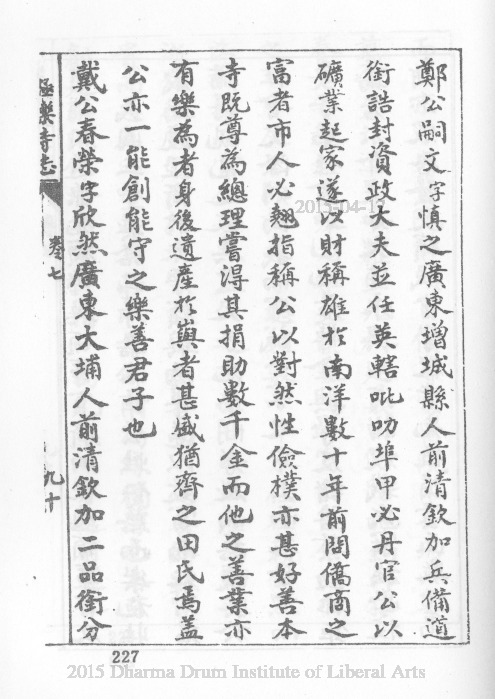 鄭公嗣文字慎之廣東增城縣人前清欽加兵備道
銜誥封資政大夫並任英轄吡叻埠甲必丹官公以
礦業起家遂以財稱雄於南洋數十年前問僑商之
富者市人必翹指稱公以對然性儉樸亦甚好善本
寺既尊為總理嘗得其捐助數千金而他之善業亦
有樂為者身後遺產於嶼者甚盛猶齊之田氏焉蓋
公亦一能創能守之樂善君子也
戴公春榮字欣然廣東大埔人前清欽加二品銜分
極樂寺志
卷七
九十
227
2015-04-17
2015 Dharma Drum Institute of Liberal Arts